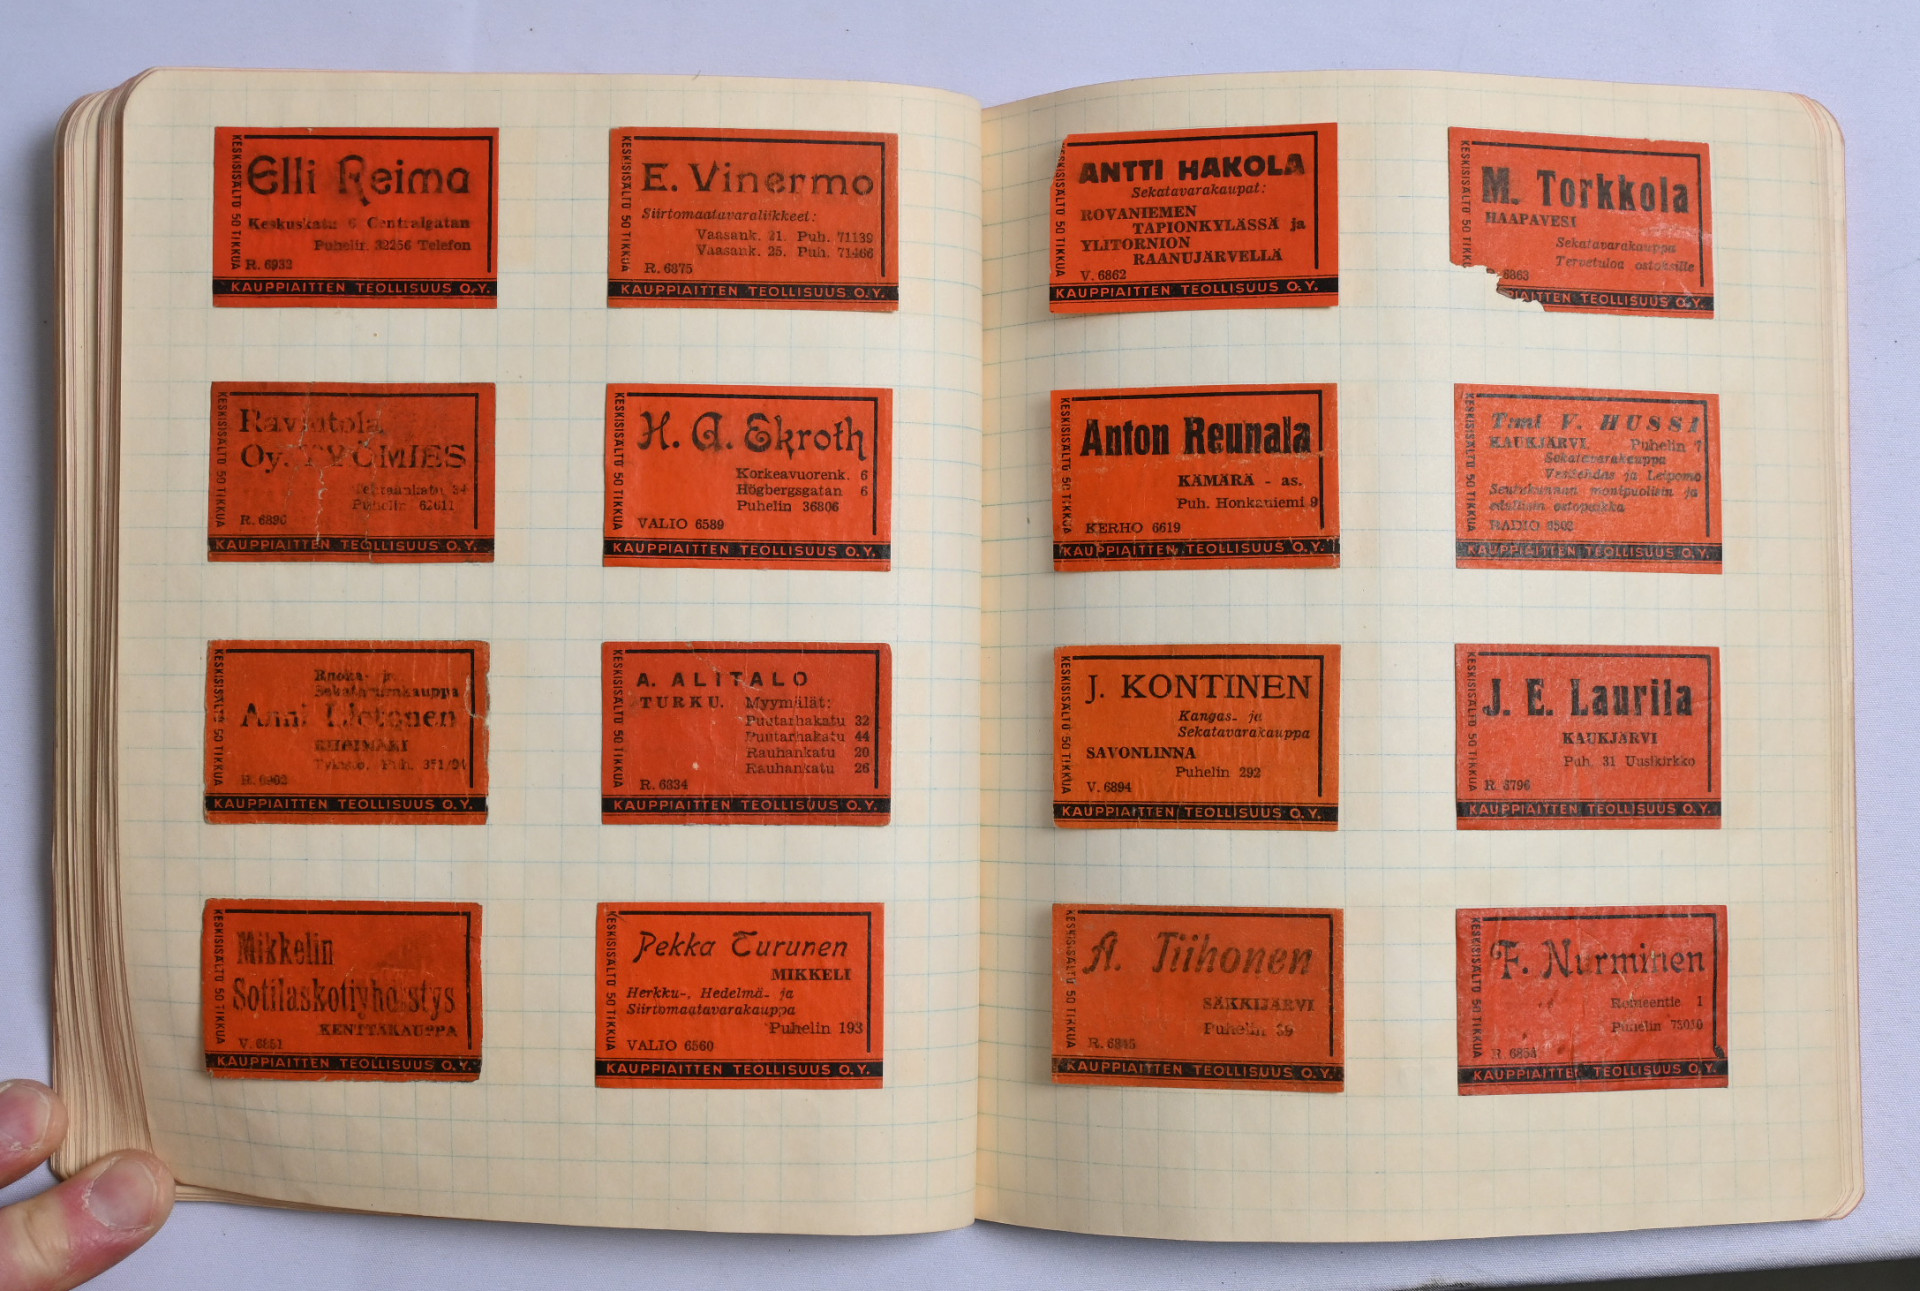 KESKISISÄLTÖ 50 TIKKUA
Elli Reima
Keskuskatu 6 Centralgatan
Puhelin 32256 Telefon
R. 6932
KAUPPIAITTEN TEOLLISUUS O.Y.
KESKISISÄLTÖ 50 TIKKUA
E. Vinermo
Siirtomaatavaraliikkeet:
Vaasank. 21. Puh. 71139
Vaasank. 25. Puh. 71466
R. 6875
KAUPPIAITTEN TEOLLISUUS O.Y.
KESKISISÄLTÖ 50 TIKKUA
Ravintola
Oy. TYÖMIES
Puhelin 62611
R. 6890
KAUPPIAITTEN TEOLLISUUS O.Y.
KESKISISÄLTÖ 50 TIKKUA
H. A. Ekroth
Korkeavuorenk. 6
Högbergsgatan 6
Puhelin 36806
VALIO 6589
KAUPPIAITTEN TEOLLISUUS O.Y.
KESKISISÄLTÖ 50 TIKKUA
Ruoka- ja
Sekatavarakauppa
Anni
RIIHIMÄKI
Puh. 351/94
KAUPPIAITTEN TEOLLISUUS O.Y.
KESKISISÄLTÖ 50 TIKKUA
A. ALITALO
TURKU. Myymälät:
Puutarhakatu 32
Puutarhakatu 44
Rauhankatu 20
Rauhankatu 26
R. 6834
KAUPPIAITTEN TEOLLISUUS O.Y.
KESKISISÄLTÖ 50 TIKKUA
Mikkelin
Sotilaskotiyhdistys
KENTTÄKAUPPA
V. 6851
KAUPPIAITTEN TEOLLISUUS O.Y.
KESKISISÄLTÖ 50 TIKKUA
Pekka Turunen
MIKKELI
Herkku-, Hedelmä- ja
Siirtomaatavarakauppa
Puhelin 193
VALIO 6560
KAUPPIAITTEN TEOLLISUUS O.Y.
KESKISISÄLTÖ 50 TIKKUA
ANTTI HAKOLA
Sekatavarakaupat:
ROVANIEMEN
TAPIONKYLÄSSÄ ja
YLITORNION
RAANUJÄRVELLÄ
V. 6862
KAUPPIAITTEN TEOLLISUUS O.Y.
KESKISISÄLTÖ 50 TIKKUA
M. Torkkola
HAAPAVESI
Sekatavarakauppa
Tervetuloa ostoksille
6863
PIAITTEN TEOLLISUUS O.Y.
KESKISISÄLTÖ 50 TIKKUA
Anton Reunala
KÄMÄRÄ - as.
Puh. Honkaniemi 9
KERHO 6619
KAUPPIAITTEN TEOLLISUUS O.Y.
KESKISISÄLTÖ 50 TIKKUA
T:mi V. HUSSI
KAUKJÄRVI Puhelin 7
Sekatavarakauppa
Vesitehdas ja Leipomo
Seurakunnan monipuolisin ja
edullisin ostopaikka
RADIO 6502
KAUPPIAITTEN TEOLLISUUS O.Y.
KESKISISÄLTÖ 50 TIKKUA
J. KONTINEN
Kangas- ja
Sekatavarakauppa
SAVONLINNA
Puhelin 292
V. 6894
KAUPPIAITTEN TEOLLISUUS O.Y.
KESKISISÄLTÖ 50 TIKKUA
J. E. Laurila
KAUKJÄRVI
Puh. 31 Uusikirkko
R 6796
KAUPPIAITTEN TEOLLISUUS O.Y.
KESKISISÄLTÖ 50 TIKKUA
A. Tiihonen
SÄKKIJÄRVI
Puhelin 39
R. 6845
KAUPPIAITTEN TEOLLISUUS O.Y.
KESKISISÄLTÖ 50 TIKKUA
F. Nurminen
Roineentie 1
Puhelin 75010
R. 6854
KAUPPIAITTEN TEOLLISUUS O.Y.